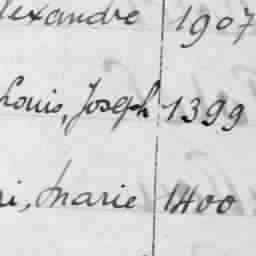 lexandre 1907
Louis, Joseph 1399
i, Marie 1400